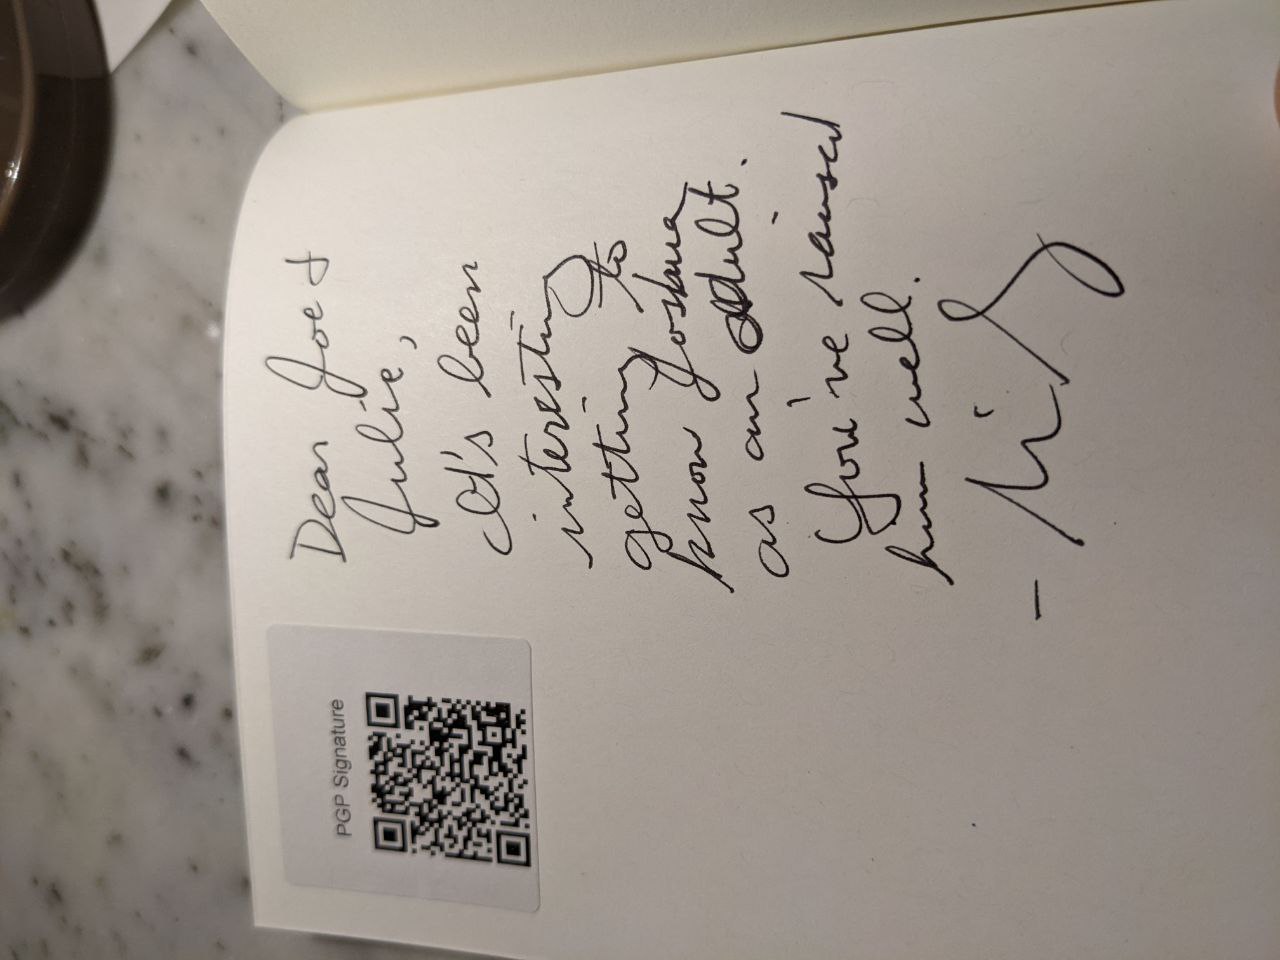 PGP Signature
Dear Joe &
Julie,
It's been
interesting
getting to
know Joshua
as an adult.
You've raised
him well.
-